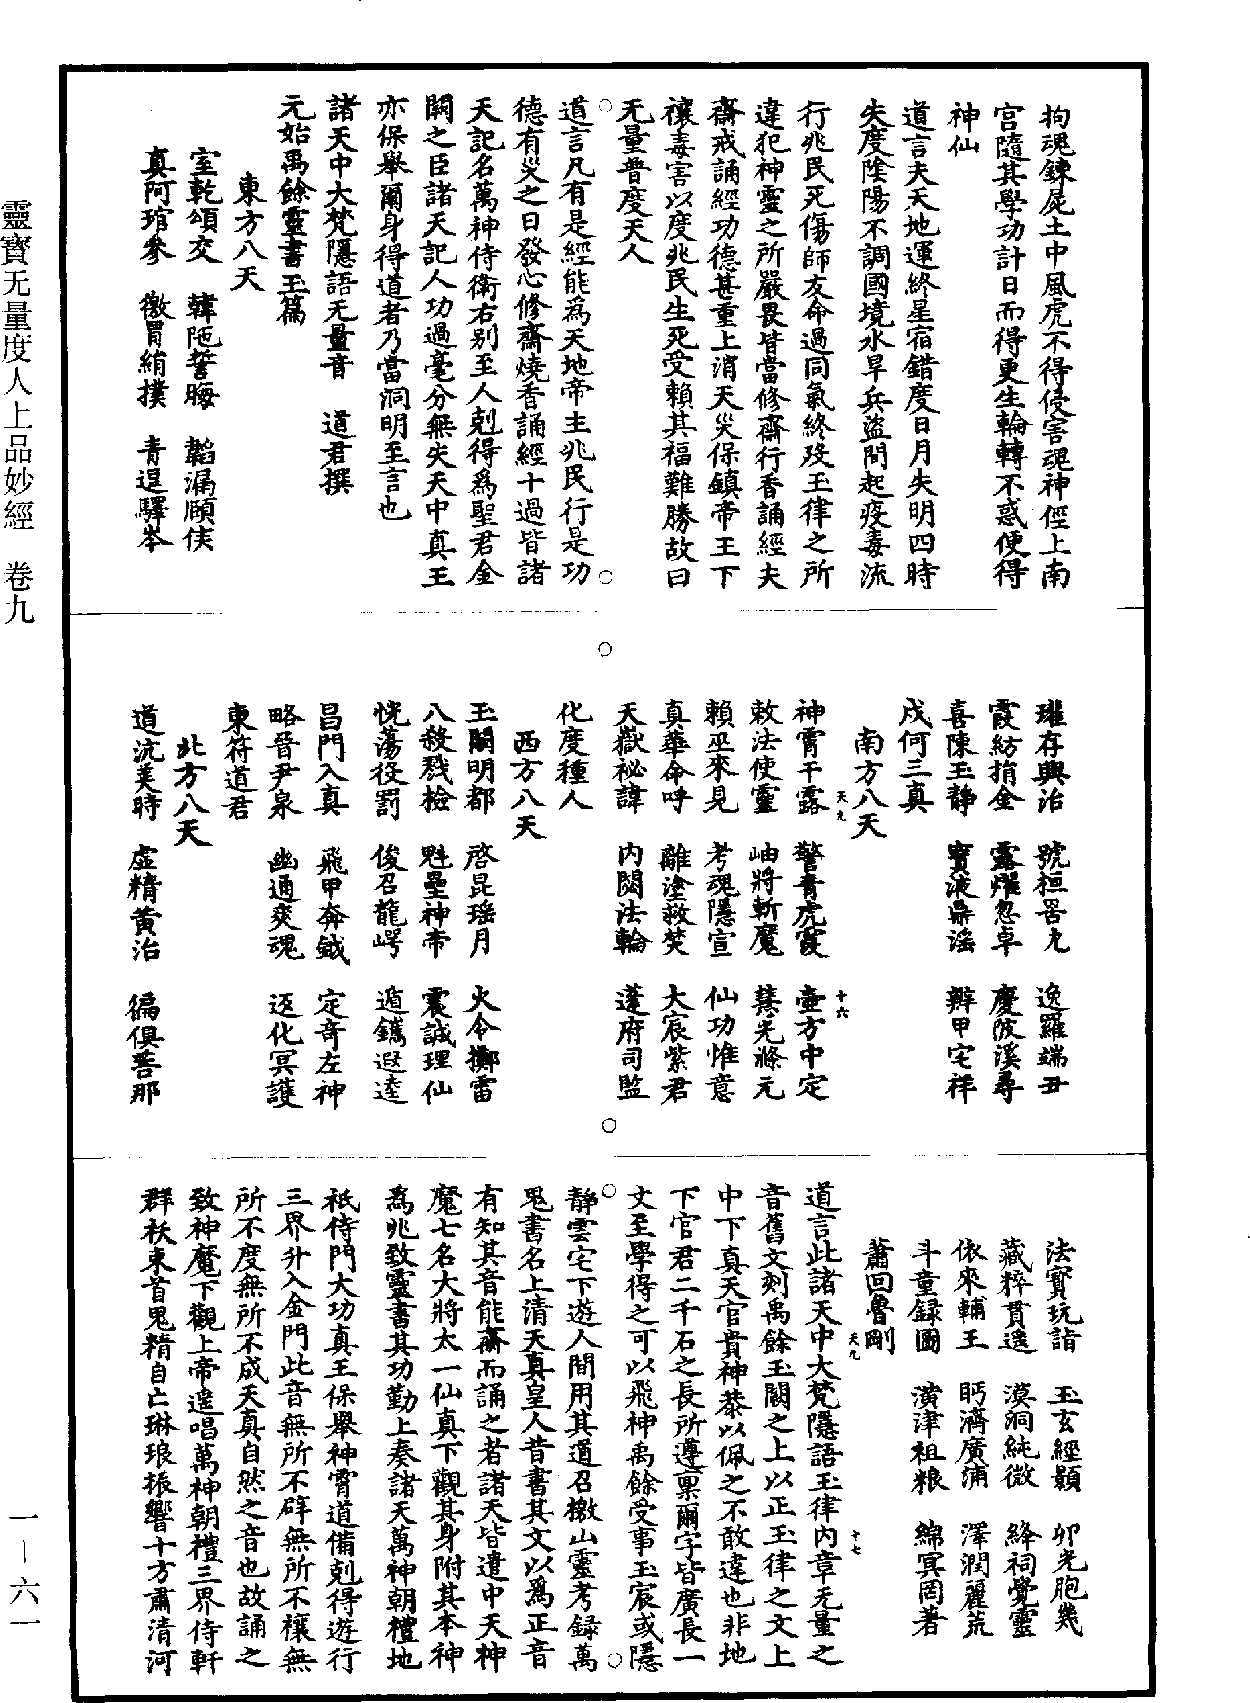 拘魂鍊屍土中風虎不得侵害魂神徑上南
宮隨其學功計日而得更生輪轉不惑便得
神仙
道言夫天地運終星宿錯度日月失明四時
失度陰陽不調國境水旱兵盜間起疫毒流
行兆民死傷師友命過同氣終歿玉律之所
違犯神靈之所嚴畏皆當修齋行香誦經夫
齋戒誦經功德甚重上消天災保鎮帝王下
禳毒害以度兆民生死受賴其福難勝故曰
无量普度天人
道言凡有是經能為天地帝主兆民行是功
德有災之日發心修齋燒香誦經十過皆諸
天記名萬神侍衛右別至人剋得為聖君金
闕之臣諸天記人功過毫分無失天中真王
亦保舉爾身得道者乃當洞明至言也
諸天中大梵隱語无量音 道君撰
元始禹餘靈書玉篇
東方八天
室乾頌交 韓陁誓晦 韜漏願侠
真阿琯參 徼冒綃撲 青逞驛岑
璀存興治 號桓罟允 逸羅端丑
霞紡捐金 露耀忽卓 慶陂溪尋
喜陳玉靜 寶液鼎滛 辮甲宅祥
戍何三真
南方八天
神霄干露 警青虎霞 壺方中定
天九
十六
敕法使靈 岫將斬魔 󠄀光滌元
賴巫來見 考魂隱宣 仙功惟意
真華命呼 離塗救焚 大宸紫君
天嶽祕諱 內闕法輪 蓬府司監
化度種人
西方八天
玉關明都 啓昆瑶月 火令擲雷
八赦戮檢 魁壘神帝 震誠理仙
恍蕩役罰 俊召龍崿 遁鑴遐逵
昌門入真 飛甲奔鉞 定奇左神
略晉尹泉 幽通爽魂 返化冥護
東符道君
北方八天
道沆美時 虛精黃治 徧俱善那
法寶玩詣 玉玄經顥 卯光胞幾
藏粹貫逸 漠洞純微 絳祠覺靈
依來輔王 眄濟廣浦 澤潤麗荒
斗童録圖 潢津祖粮 綿冥罔著
蕭回魯剛
天九
十七
道言此諸天中大梵隱語玉律內章无量之
音舊文刻禹餘玉闕之上以正玉律之文上
中下真天官貴神恭以佩之不敢違也非地
下官君二千石之長所遵稟爾字皆廣長一
文至學得之可以飛神禹餘受事玉宸或隱
靜雲宅下遊人間用其道召檄山靈考録萬
鬼書名上清天真皇人昔書其文以為正音
有知其音能齋而誦之者諸天皆遣中天神
魔七名大將太一仙真下觀其身附其本神
為兆致靈書其功勤上奏諸天萬神朝禮地
祇侍門大功真王保舉神霄道備剋得遊行
三界升入金門此音無所不辟無所不禳無
所不度無所不成天真自然之音也故誦之
致神魔下觀上帝遥唱萬神朝禮三界侍軒
群祅束首鬼精自亡琳琅振響十方肅清河
靈寶无量度人上品妙經 卷九
一—六一